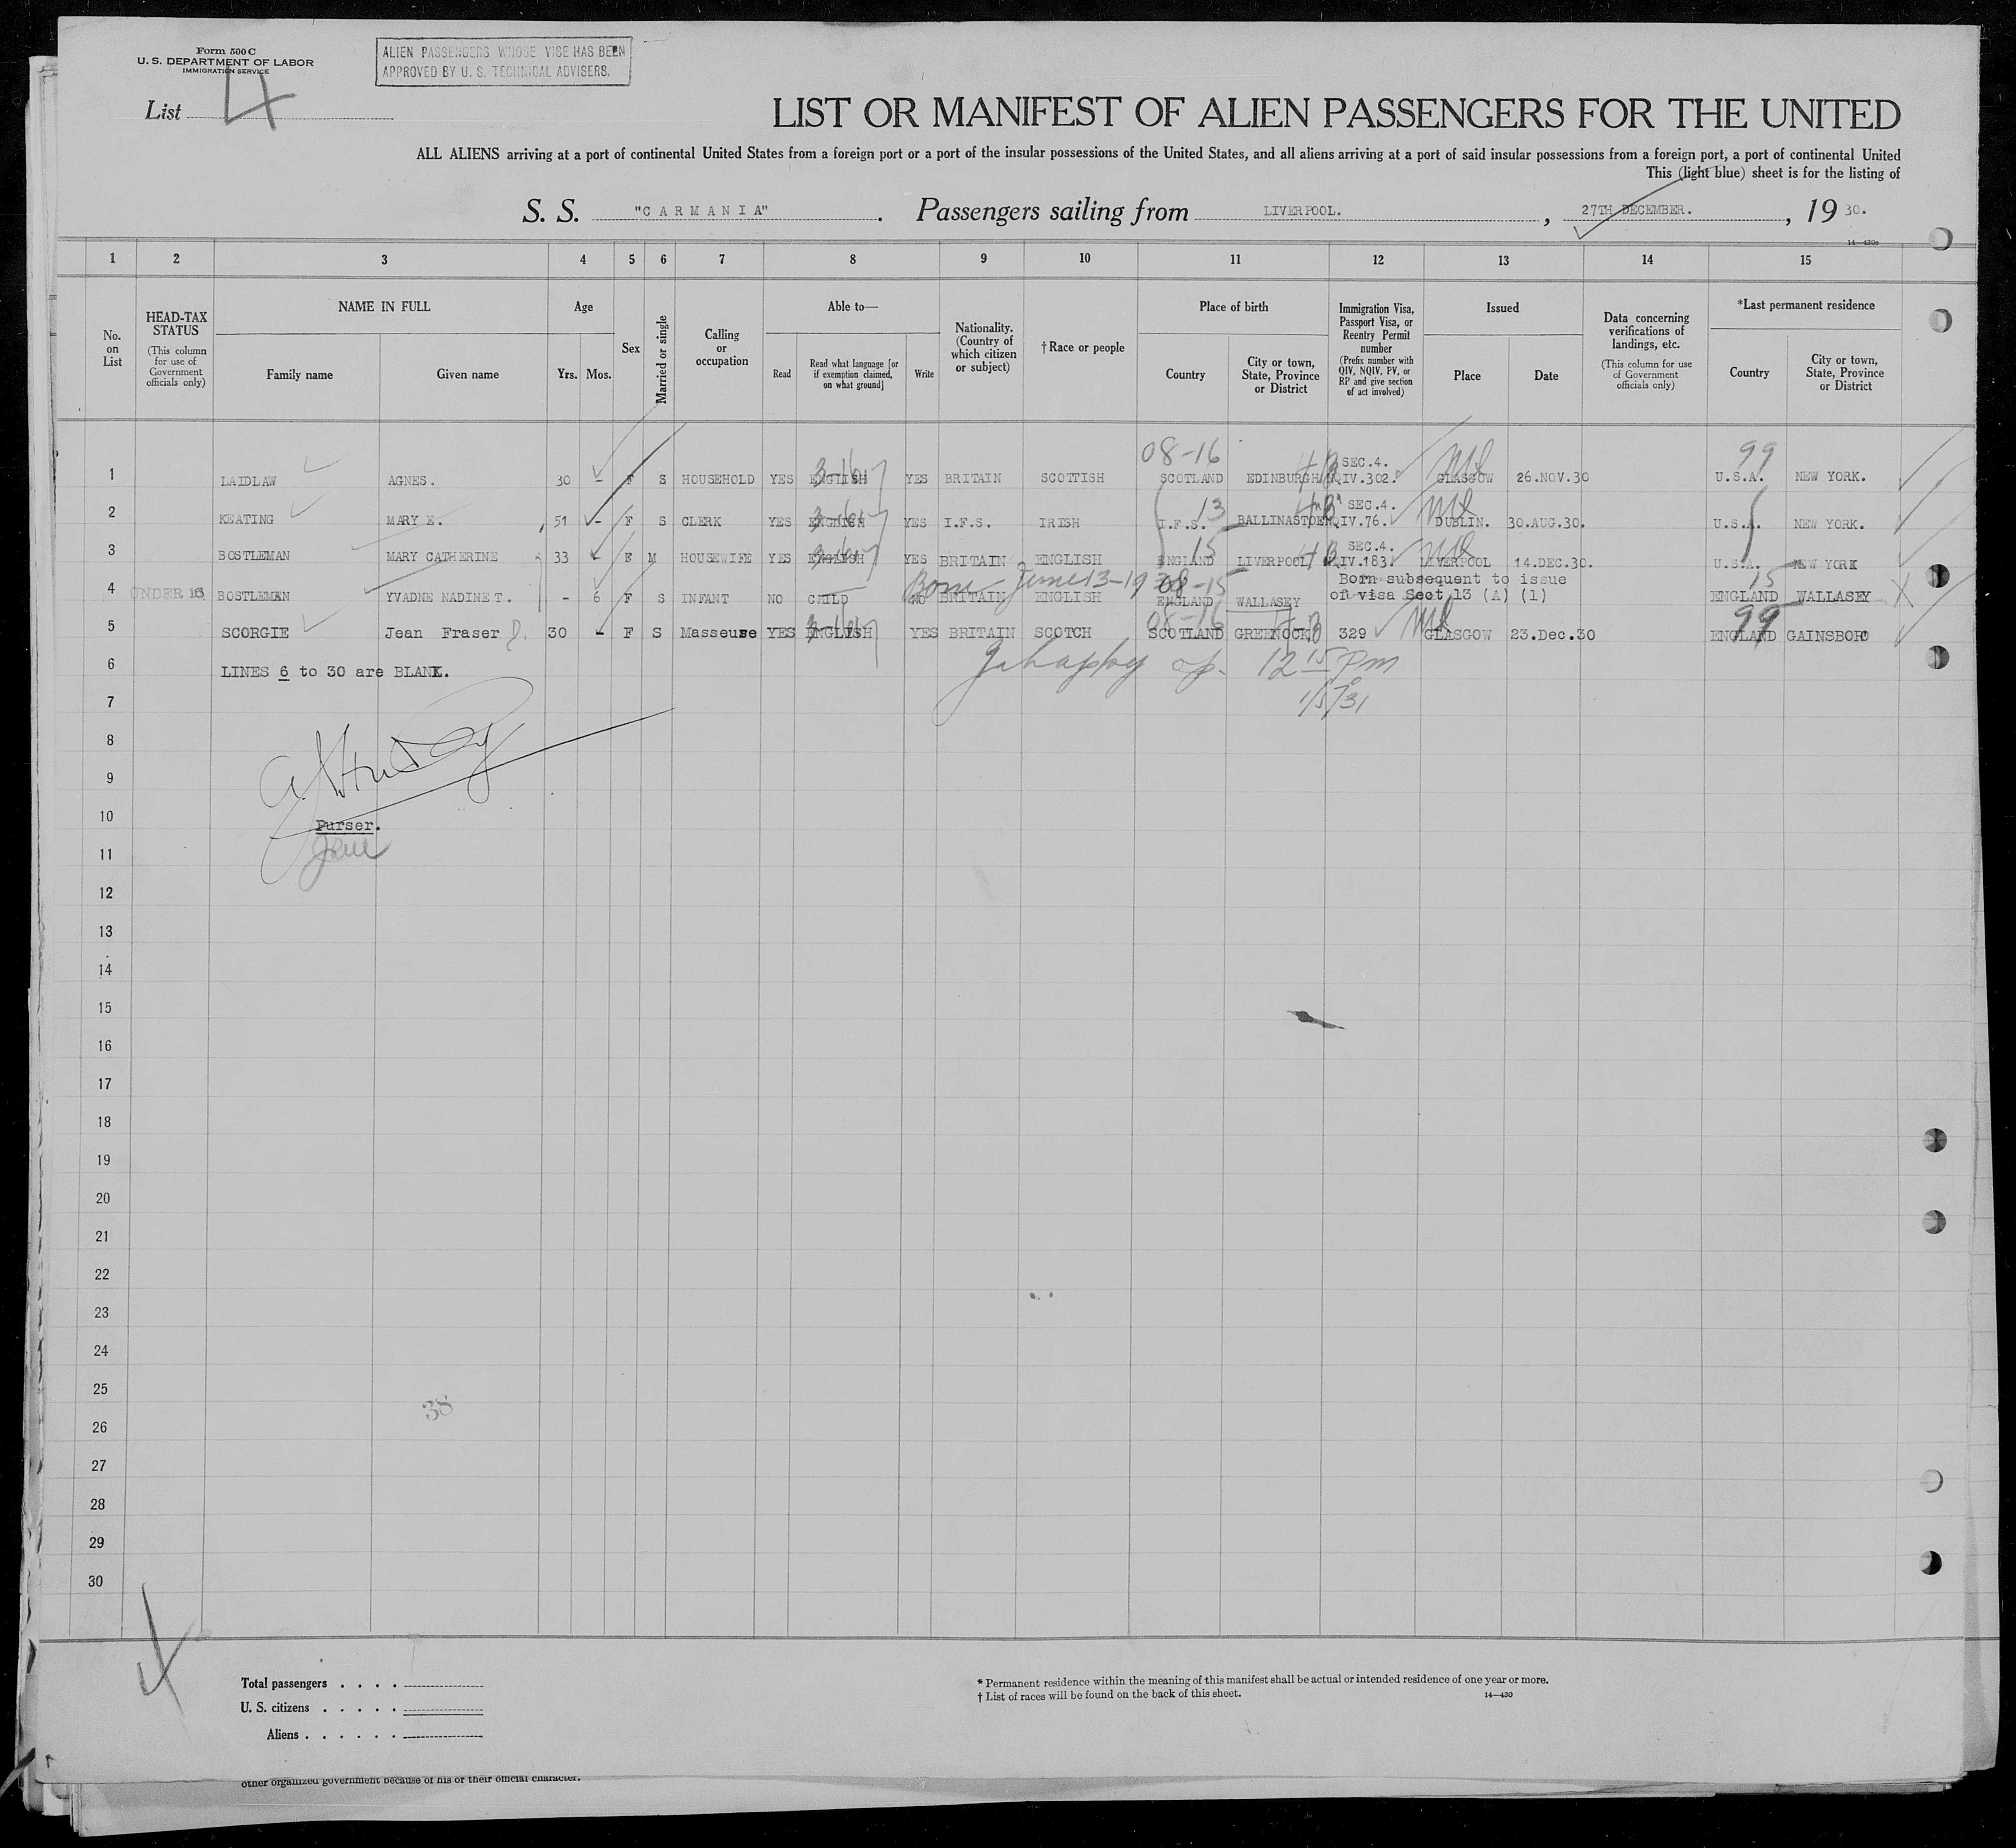 Form 500 C
U. S. DEPARTMENT OF LABOR
IMMIGRATION SERVICE
ALIEN PASSENGERS WHOSE VISE HAS BEEN
APPROVED BY U. S. TECHNICAL ADVISERS.
List 4
LIST OR MANIFEST OF ALIEN PASSENGERS FOR THE UNITED
ALL ALIENS arriving at a port of continental United States from a foreign port or a port of the insular possessions of the United States, and all aliens arriving at a port of said insular possessions from a foreign port, a port of continental United
This (light blue) sheet is for the listing of
S. S. "CARMANIA". Passengers sailing from LIVERPOOL. , 27TH DECEMBER. , 19 30.
14—430c
1 2 3 4 5 6 7 8 9 10 11 12 13 14 15
No. on List
HEAD-TAX STATUS
(This column for use of Government officials only)
NAME IN FULL
Family name Given name
Age
Yrs. Mos.
Sex
Married or single
Calling or occupation
Able to—
Read
Read what language [or if exemption claimed, on what ground]
Write
Nationality. (Country of which citizen or subject)
†Race or people
Place of birth
Country
City or town, State, Province or District
Immigration Visa, Passport Visa, or Reentry Permit number
(Prefix number with QIV, NQIV, PV, or RP and give section of act involved)
Issued
Place Date
Data concerning verifications of landings, etc.
(This column for use of Government officials only)
*Last permanent residence
Country
City or town, State, Province or District
08-16 4B SEC.4. 99
1 LAIDLAW AGNES. 30 - F S HOUSEHOLD YES ENGLISH YES BRITAIN SCOTTISH SCOTLAND EDINBURGH QIV.302. GLASGOW 26.NOV.30 U.S.A. NEW YORK.
13 SEC.4.
2 KEATING MARY E. 51 - F S CLERK YES ENGLISH YES I.F.S. IRISH I.F.S. BALLINASTOE QIV.76. DUBLIN. 30.AUG.30. U.S.A. NEW YORK.
15 4B SEC.4.
3 BOSTLEMAN MARY CATHERINE 33 F M HOUSEWIFE YES ENGLISH YES BRITAIN ENGLISH ENGLAND LIVERPOOL QIV.183. LIVERPOOL 14.DEC.30. U.S.A. NEW YORK
Born June 13-1930 08-15 Born subsequent to issue 15
4 UNDER 16 BOSTLEMAN YVADNE NADINE T. - 6 F S INFANT NO CHILD NO BRITAIN ENGLISH ENGLAND WALLASEY of visa Sect 13 (A) (1) ENGLAND WALLASEY X
08-16 99
5 SCORGIE Jean Fraser 30 - F S Masseuse YES ENGLISH YES BRITAIN SCOTCH SCOTLAND GREENOCK 329 GLASGOW 23.Dec.30 ENGLAND GAINSBORO
6 LINES 6 to 30 are BLANK.
12 15 Pm
7 1/5/31
8
9
10 Purser.
11
12
13
14
15
16
17
18
19
20
21
22
23
24
25
38
26
27
28
29
30
4
Total passengers . . . .
U. S. citizens . . . . .
Aliens . . . . . .
* Permanent residence within the meaning of this manifest shall be actual or intended residence of one year or more.
† List of races will be found on the back of this sheet.
14—430
other organized government because of his or their official character.